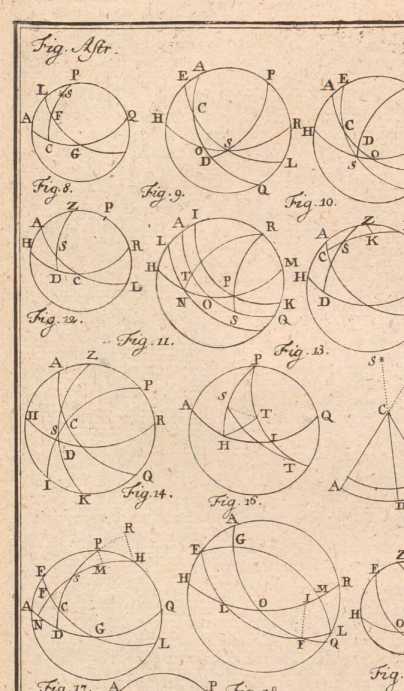 Fig. Astr.
P
L S
A F Q
C G
Fig. 8.
A
E P
C
H R
O S
D L
Q
Fig. 9.
E
A
H C
D
S O
Fig. 10.
Z P
A
H S R
D C
L
Fig. 12.
A I
L R
H T M
P
N O K
S Q
Fig. 11.
Z
A K
C S
H
D
Fig. 13.
A Z
P
H
S C R
D
I Q
K
Fig. 14.
P
S
A T Q
H I
T
Fig. 16.
S
C
A
D
R
P
E S M H
F
A C Q
N D G
L
Fig. 17.
A
E G
H M R
I
L O
L
P Q
A P
Z
E
H
O
Fig.